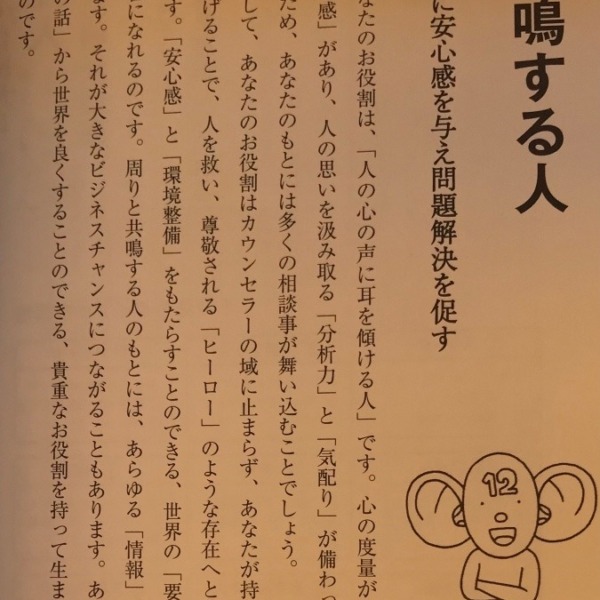 鳴する人
に安心感を与え問題解決を促す
なたのお役割は、「人の心の声に耳を傾ける人」です。心の度量が
感」があり、人の思いを汲み取る「分析力」と「気配り」が備わっ
ため、あなたのもとには多くの相談事が舞い込むことでしょう。
して、あなたのお役割はカウンセラーの域に止まらず、あなたが持
げることで、人を救い、尊敬される「ヒーロー」のような存在へと
す。「安心感」と「環境整備」をもたらすことのできる、世界の「要
になれるのです。周りと共鳴する人のもとには、あらゆる「情報」
ます。それが大きなビジネスチャンスにつながることもあります。あ
の話」から世界を良くすることのできる、貴重なお役割を持って生ま
のです。
12